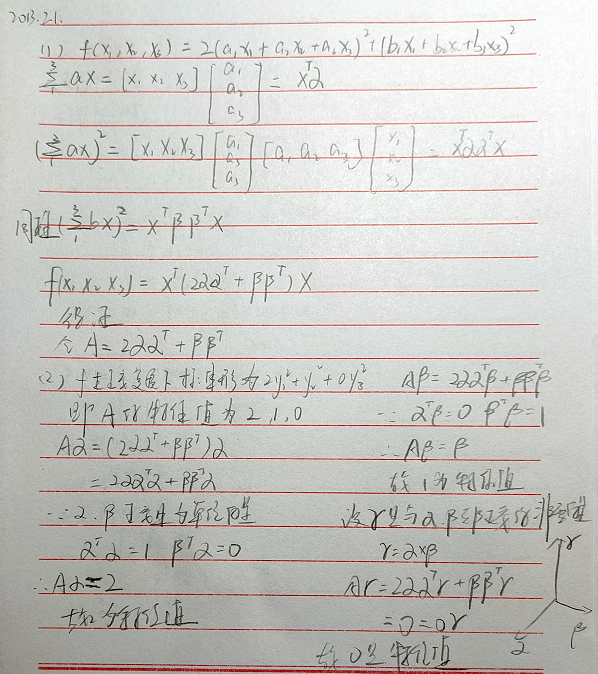 2013.21.
(1) f(x₁,x₂,x₃) = 2(a₁x₁+a₂x₂+a₃x₃)²+(b₁x₁+b₂x₂+b₃x₃)²
³Σ₁ ax = [x₁ x₂ x₃] [a₁ a₂ a₃] = xᵀα
(³Σ₁ ax)² = [x₁ x₂ x₃] [a₁ a₂ a₃] [a₁ a₂ a₃] [x₁ x₂ x₃] = xᵀααᵀx
同理 (³Σ₁ bx)² = xᵀββᵀx
f(x₁ x₂ x₃) = xᵀ(2ααᵀ+ββᵀ)x
得证
令 A = 2ααᵀ+ββᵀ
(2) f 在正交变换下标准形为 2y₁²+y₂²+0y₃²
即 A 的特征值为 2,1,0
Aα = (2ααᵀ+ββᵀ)α
= 2ααᵀα+ββᵀα
∵ α.β 正交且为单位向量
αᵀα=1 βᵀα=0
∴Aα=2
故2为特征值
Aβ = 2ααᵀβ+ββᵀβ
∵ αᵀβ=0 βᵀβ=1
∴ Aβ = β
故 1 为特征值
设γ是与α.β都正交的非零向量
γ=α×β
Aγ = 2ααᵀγ+ββᵀγ
=0=0γ
故0是特征值
γ
α
β